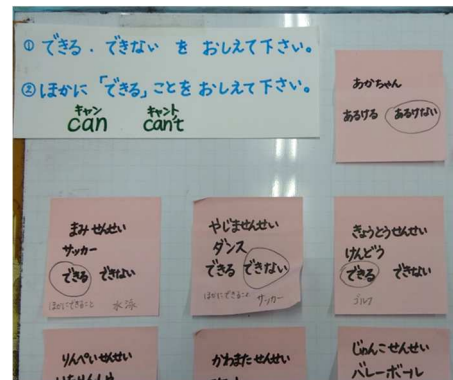 ① できる . できない を おしえて下さい。
② ほかに 「できる」ことを おしえて下さい。
キャン キャント
can can't
あかちゃん
あるける あるけない
まみ せんせい
サッカー
できる できない
ほかにできること 水泳
やじませんせい
ダンス
できる できない
ほかにできること サッカー
きょうとうせんせい
けんどう
できる できない
ゴルフ
りんぺいせんせい
かわまたせんせい
じゅんこせんせい
バレーボール